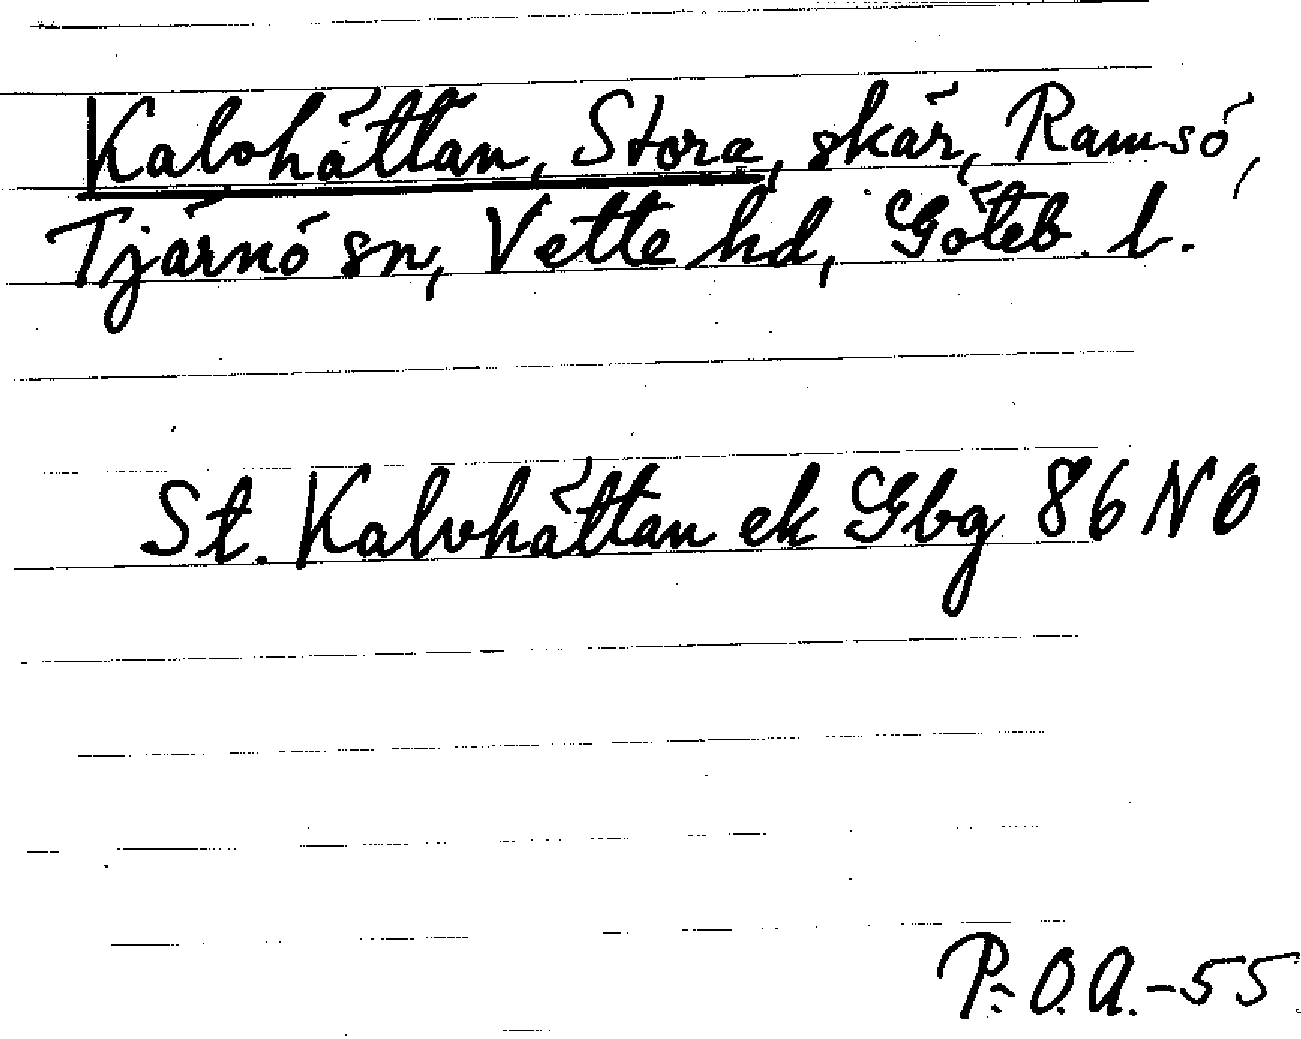 Kalvhättan, Stora, skär, Ramsö,
Tjärnö sn, Vette hd, Göteb. l.
St. Kalvhättan ek Gbg 86 NO
P:O.A.-55